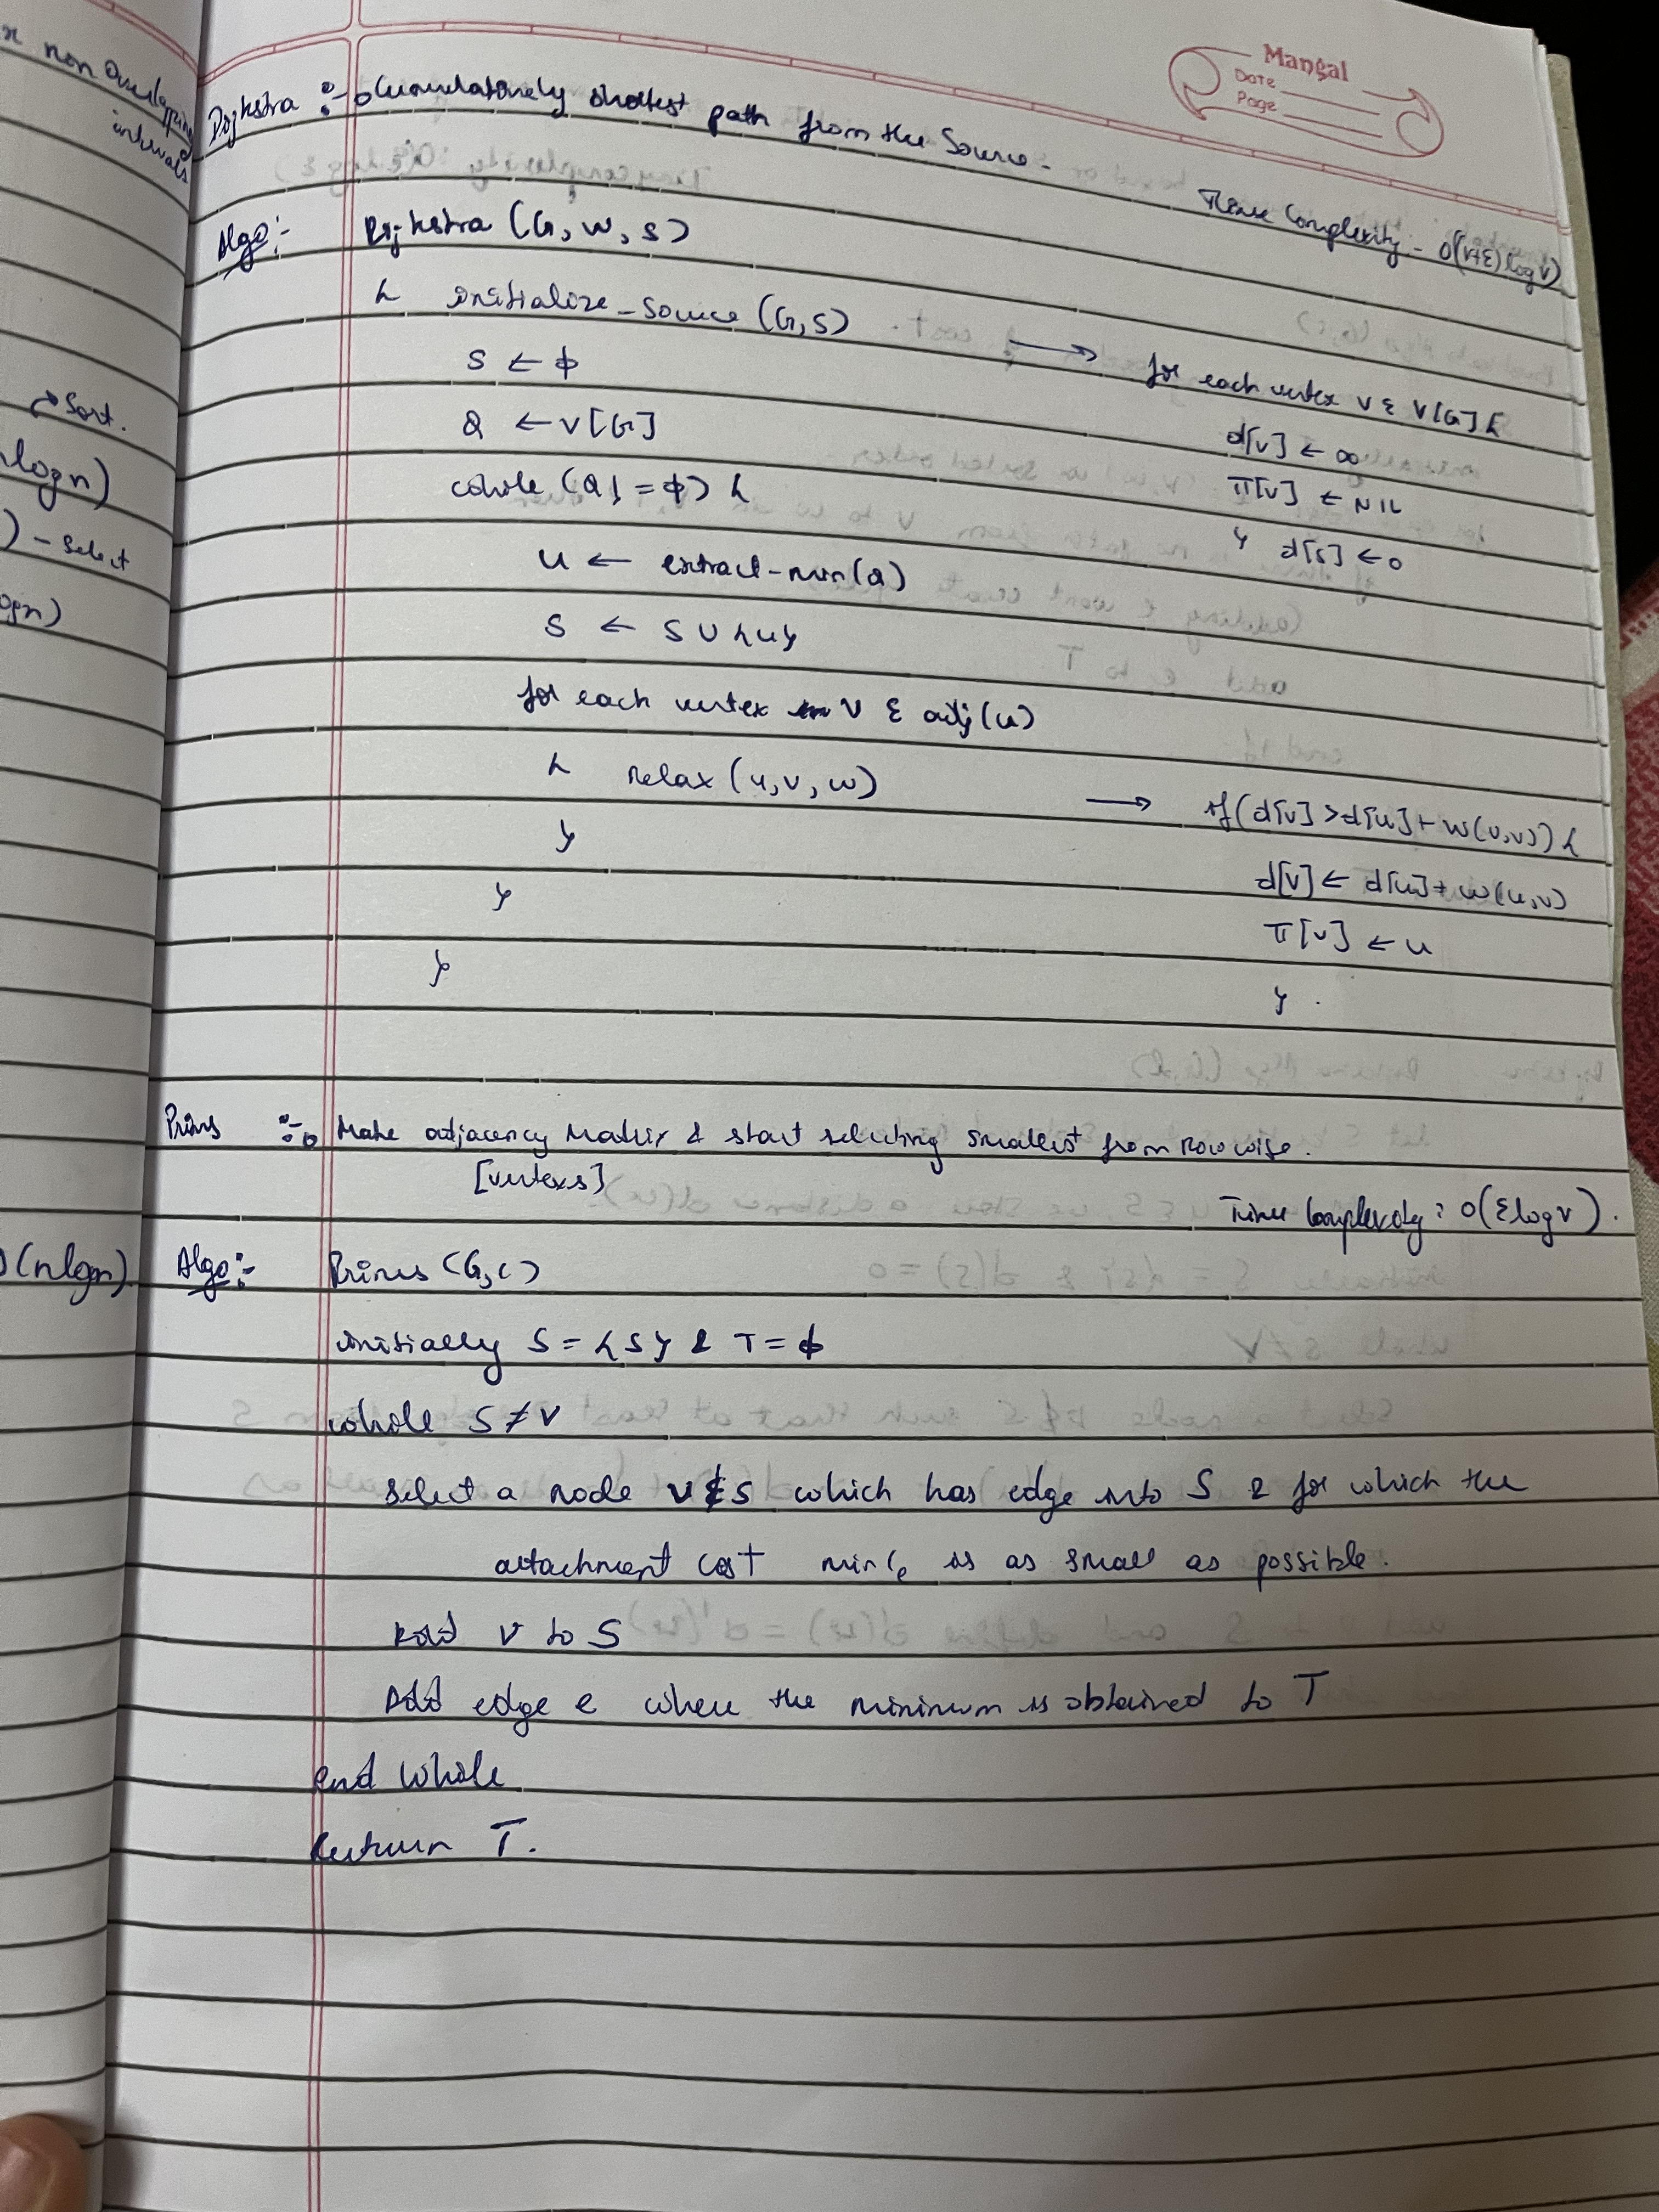 Mangal
Date
Page
x non overlapping
intervals
Dijkstra :- Cumulatively shortest path from the Source.
Time Complexity - O((V+E) log V)
Algo:- Dijkstra (G, w, s)
{ initialize-source (G, S) → for each vertex v ε V[G] {
S ← φ
d[v] ← ∞
Q ← V[G]
π[v] ← NIL
while (Q != φ) {
} d[s] ← 0
u ← extract-min(Q)
S ← S ∪ {u}
for each vertex v ε adj(u)
{ relax (u, v, w) → if (d[v] > d[u] + w(u,v)) {
}
d[v] ← d[u] + w(u,v)
}
π[v] ← u
}
}
→ Sort.
nlogn)
) - Select
ogn)
Prims :- Make adjacency Matrix & start selecting smallest from row wise.
[vertexs]
Time Complexity : O(E log V).
O(nlogn)
Algo:- Prims (G, c)
initially S = {s} & T = φ
while S ≠ V
Select a node v ∉ S which has edge into S & for which the
attachment cost min Ce is as small as possible.
Add v to S
Add edge e where the minimum is obtained to T
end while
Return T.